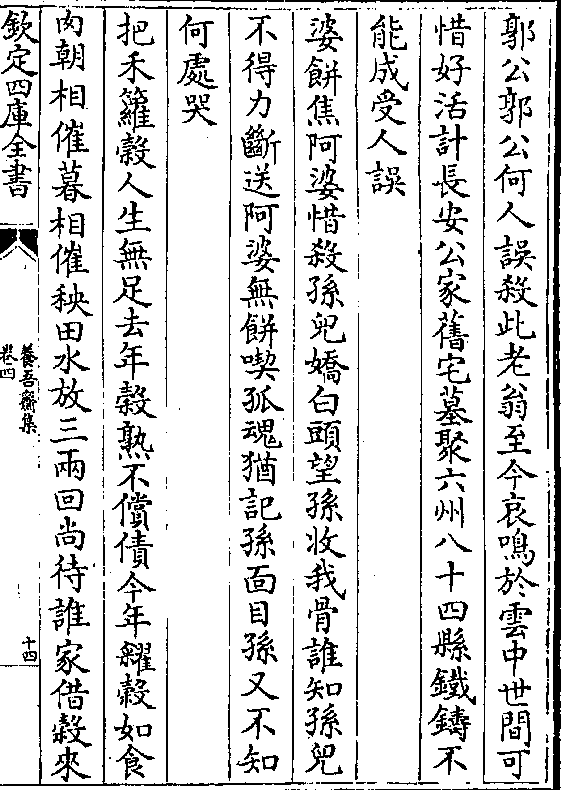 郭公郭公何人誤殺此老翁至今哀鳴於雲中世間可
惜好活計長安公家舊宅墓聚六州八十四縣鐵鑄不
能成受人誤
婆餅焦阿婆惜殺孫兒嬌白頭望孫收我骨誰知孫兒
不得力斷送阿婆無餅喫孤魂猶記孫面目孫又不知
何處哭
把禾籮穀人生無足去年穀熟不償債今年糶穀如食
肉朝相催暮相催秧田水放三兩回尚待誰家借穀來
欽定四庫全書
養吾齋集
卷四
十四